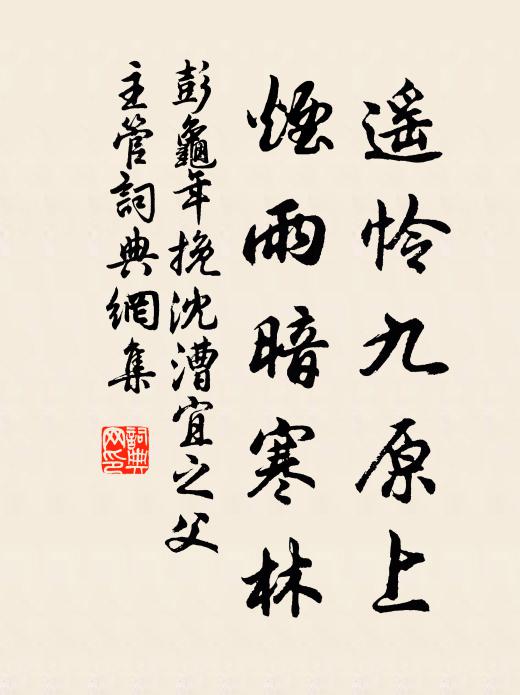 遥怜九原上
煙雨暗寒林
彭龜年挽沈漕宜之父
主管詞典網集
詞典网印